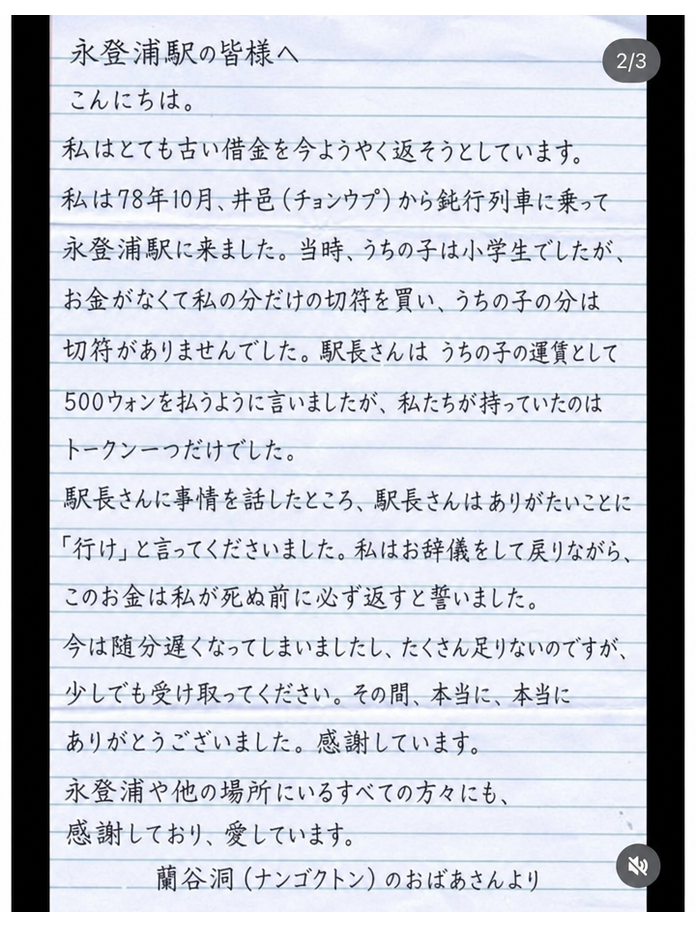 永登浦駅の皆様へ
2/3
こんにちは。
私はとても古い借金を今ようやく返そうとしています。
私は78年10月、井邑(チョンウプ)から鈍行列車に乗って
永登浦駅に来ました。当時、うちの子は小学生でしたが、
お金がなくて私の分だけの切符を買い、うちの子の分は
切符がありませんでした。駅長さんは うちの子の運賃として
500ウォンを払うように言いましたが、私たちが持っていたのは
トークン一つだけでした。
駅長さんに事情を話したところ、駅長さんはありがたいことに
「行け」と言ってくださいました。私はお辞儀をして戻りながら、
このお金は私が死ぬ前に必ず返すと誓いました。
今は随分遅くなってしまいましたし、たくさん足りないのですが、
少しでも受け取ってください。その間、本当に、本当に
ありがとうございました。感謝しています。
永登浦や他の場所にいるすべての方々にも、
感謝しており、愛しています。
蘭谷洞(ナンゴクトン)のおばあさんより